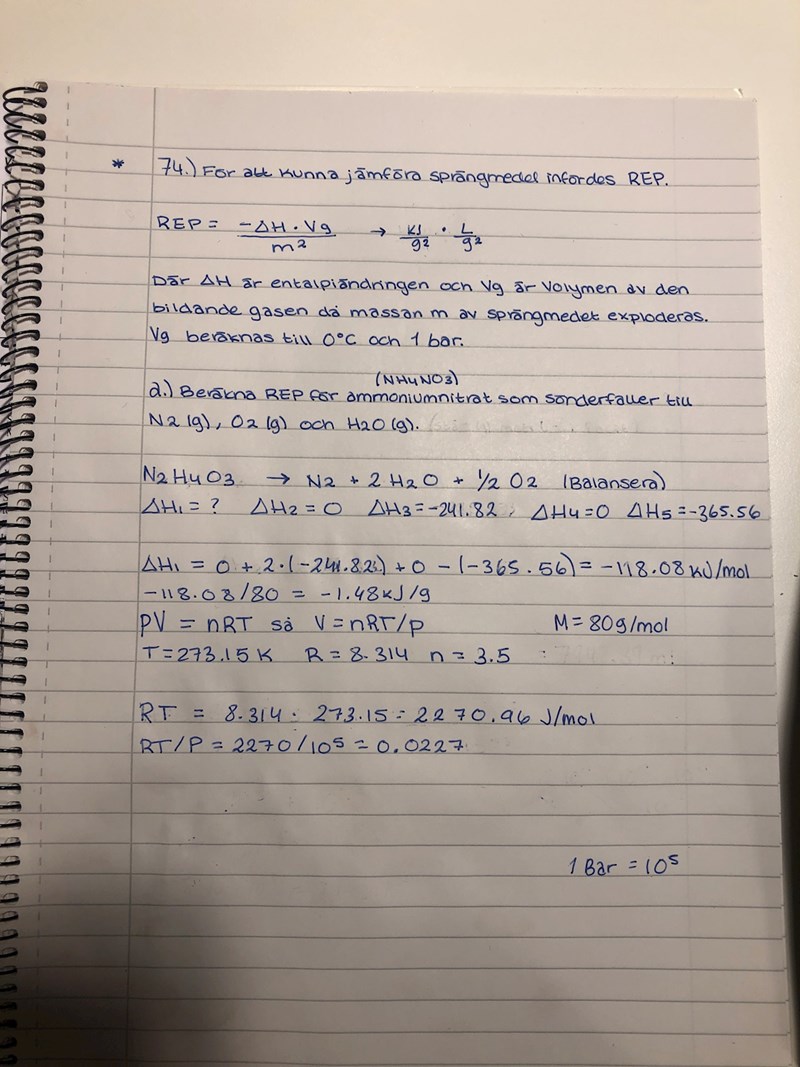 * 74.) För att kunna jämföra sprängmedel infördes REP.
REP = -ΔH · Vg / m² → KJ/g² · L/g²
Där ΔH är entalpiändringen och Vg är volymen av den
bildande gasen då massan m av sprängmedet exploderas.
Vg beräknas till 0°C och 1 bar.
(NH4NO3)
a.) Beräkna REP för ammoniumnitrat som sönderfaller till
N2 (g), O2 (g) och H2O (g).
N2H4O3 → N2 + 2 H2O + 1/2 O2 (Balansera)
ΔH1 = ? ΔH2 = 0 ΔH3 = -241.82, ΔH4 = 0 ΔH5 = -365.56
ΔH1 = 0 + 2·(-241.82) + 0 - (-365.56) = -118.08 kJ/mol
-118.08/80 = -1.48 kJ/g
PV = nRT så V = nRT/p M = 80g/mol
T = 273.15 K R = 8.314 n = 3.5
RT = 8.314 · 273.15 = 2270.96 J/mol
RT/P = 2270/10⁵ = 0.0227
1 Bar = 10⁵